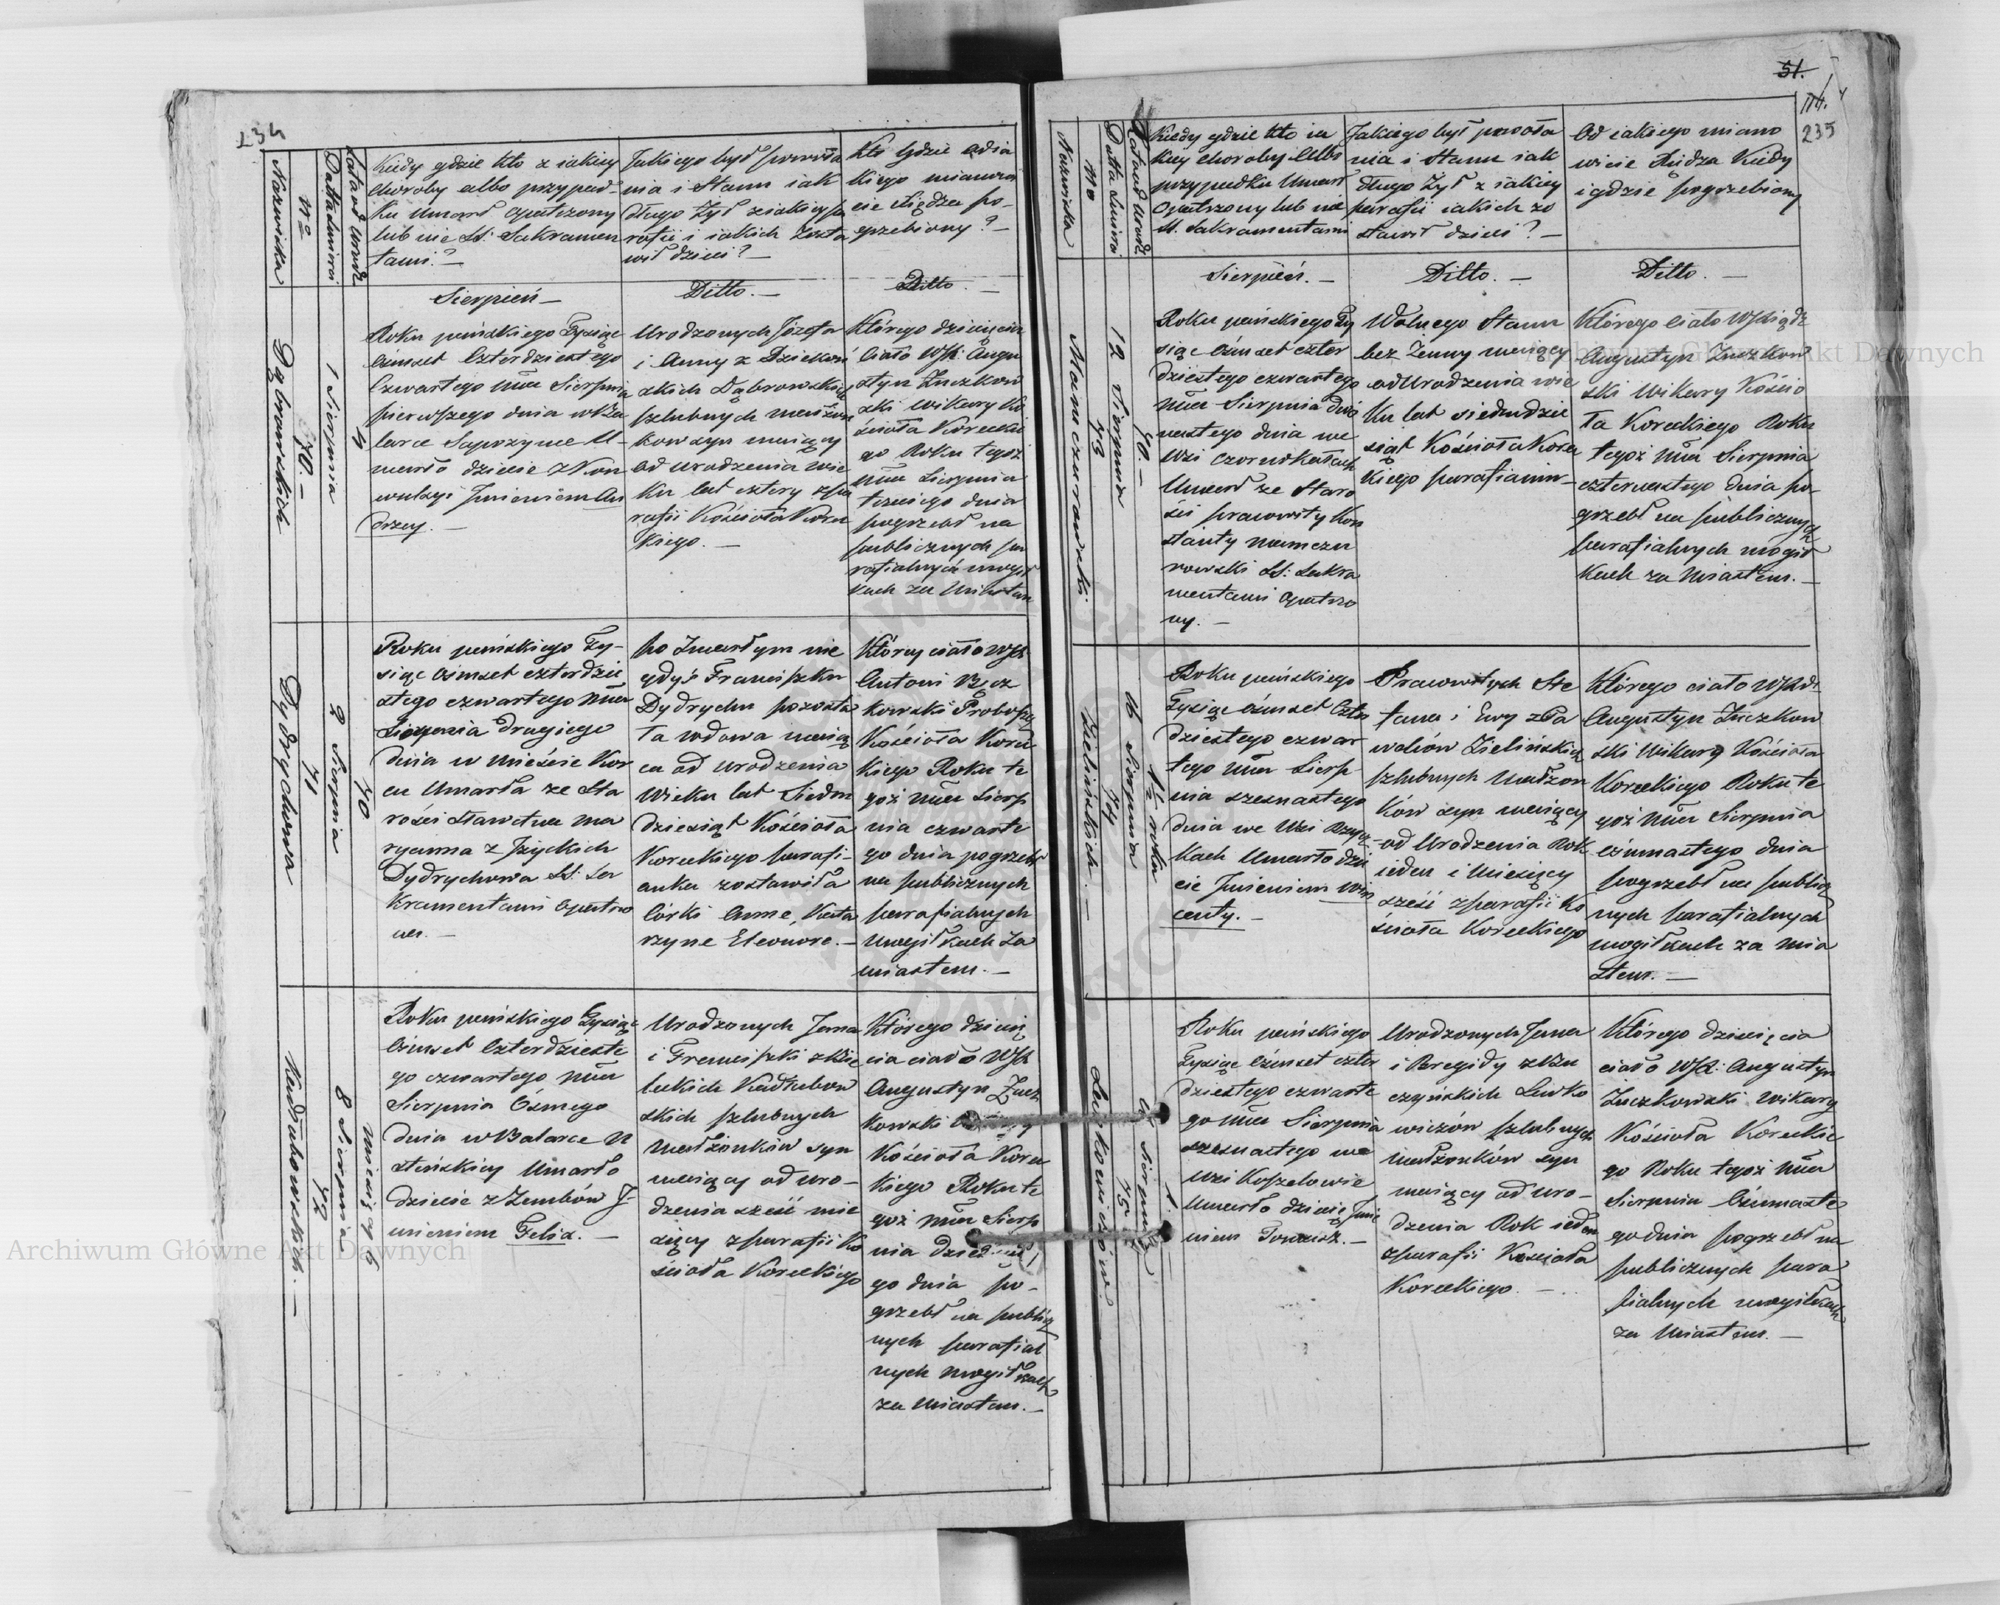 234
Nazwiska
No
Datta śmierci
Lata od urodz
Kiedy gdzie kto z iakiey
choroby albo przypad-
ku umarł opatrzony
lub nie SS: Sakramen
tami? —
Jakiego był powoła
nia i stanu iak
długo żył z iakiey pa
rafii i iakich zosta
wił dzieci? —
Kto gdzie od ia
kiego mianowi
cie Xiędza po-
grzebiony? —
Sierpień —
Ditto. —
Ditto. —
Dąbrowskich
70. —
1 Sierpnia
4
Roku pańskiego Tysiąc
ósmset czterdziestego
czwartego mca Sierpnia
pierwszego dnia w
Umarło dziecie z kon
wulsyi Jmieniem An
drzey. —
Urodzonych Józefa
i Anny z
Dąbrowskich
szlubnych małżon
ków syn maiący
od urodzenia wie
ku lat cztery z pa
rafii Kościoła Korec
kiego. —
Którego dziecięcia
ciało WJX: Augu
styn Zuczkow
ski wikary Ko
ścioła Koreckie
go Roku tegoż
mca Sierpnia
trzeciego dnia
pogrzebł na
publicznych pa
rafialnych mogił
kach za miastem
Dydrychowa
71
2 Sierpnia
70
Roku pańskiego Ty-
siąc ósmset czterdzie
stego czwartego mca
Sierpnia drugiego
dnia w mieście Kor
cu Umarła ze sta
rości sławetna Ma
ryanna z
Dydrychowa SS: Sa
kramentami opatrzo
na. —
po zmarłym nie
gdyś Franciszku
Dydrychu pozosta
ła wdowa maią
ca od urodzenia
wieku lat siedm
dziesiąt Kościoła
Koreckiego parafi-
anka zostawiła
córki Annę, Kata
rzynę Eleonorę. —
Którey ciało WJX
Antoni
Proboszcz
Kościoła Korec
kiego Roku te
goż mca Sierp
nia czwarte
go dnia pogrzebł
na publicznych
parafialnych
mogiłkach za
miastem. —
Kadłubowskich. —
72
8 Sierpnia
miesięcy 6
Roku pańskiego Tysiąc
ósmset czterdzieste
go czwartego mca
Sierpnia ósmego
dnia w
Umarło
dziecie z zembów J-
mieniem Felix. —
Urodzonych Jana
i Franciszki z
Kadłubow
skich szlubnych
małżonków syn
maiący od uro-
dzenia sześć mie
sięcy z parafii Ko
ścioła Koreckiego
Którego dziecię
cia ciało WJX
Augustyn Zucz
kowski wikary
Kościoła Korec
kiego Roku te
goż mca Sierp
nia
go dnia po-
grzebł na publicz
nych parafial
nych mogiłkach
za miastem. —
51.
114.
235
Nazwiska
No
Datta śmierci
Lata od urodz
Kiedy gdzie kto ia
kiey choroby albo
przypadku umarł
opatrzony lub nie
SS. Sakramentami
Jakiego był powoła
nia i stanu iak
długo żył z iakiey
parafii iakich zo
stawił dzieci? —
Od iakiego miano
wicie Xiędza kiedy
i gdzie pogrzebiony
Sierpień. —
Ditto. —
Ditto. —
73
12 Sierpnia
70. —
Roku pańskiego Ty
siąc ósmset czter
dziestego czwartego
mca Sierpnia dwu
nastego dnia we
wsi
Umarł ze staro
ści pracowity Kon
stanty
SS: Sakra
mentami opatrzo
ny. —
Wolnego stanu
bez żenny maiący
od urodzenia wie
ku lat siedmdzie
siąt Kościoła Korec
kiego parafianin —
Którego ciało WJXiądz
Augustyn Zuczkow
ski wikary Kościo
ła Koreckiego Roku
tegoż mca Sierpnia
czternastego dnia po-
grzebł na publicznych
parafialnych mogił
kach za miastem. —
Zielińskich. —
74
16 Sierpnia
1½ roku
Roku pańskiego
Tysiąc ósmset czter
dziestego czwar
tego mca Sierp
nia szesnastego
dnia we wsi
Umarło dzie
cie Jmieniem Win
centy. —
Pracowitych Ste
fana i Ewy z
Zielińskich
szlubnych małżon
ków syn maiący
od urodzenia Rok
ieden i miesięcy
sześć z parafii Ko
ścioła Koreckiego
Którego ciało WJXdz
Augustyn Zuczkow
ski wikary Kościoła
Koreckiego Roku te
goż mca Sierpnia
ósmnastego dnia
pogrzebł na publicz
nych parafialnych
mogiłkach za mia
stem. —
75
16 Sierpnia
1.
Roku pańskiego
Tysiąc ósmset czter
dziestego czwarte
go mca Sierpnia
szesnastego we
wsi
Umarło dziecię Jmie
niem —
Urodzonych Jana
i Bregidy z
szlubnych
małżonków syn
maiący od uro-
dzenia Rok ieden
z parafii Kościoła
Koreckiego. —
Którego dziecięcia
ciało WJX: Augustyn
Zuczkowski wikary
Kościoła Koreckie
go Roku tegoż mca
Sierpnia ósmnaste
go dnia pogrzebł na
publicznych para
fialnych mogiłkach
za miastem. —
Archiwum Główne Akt Dawnych
Archiwum Główne Akt Dawnych